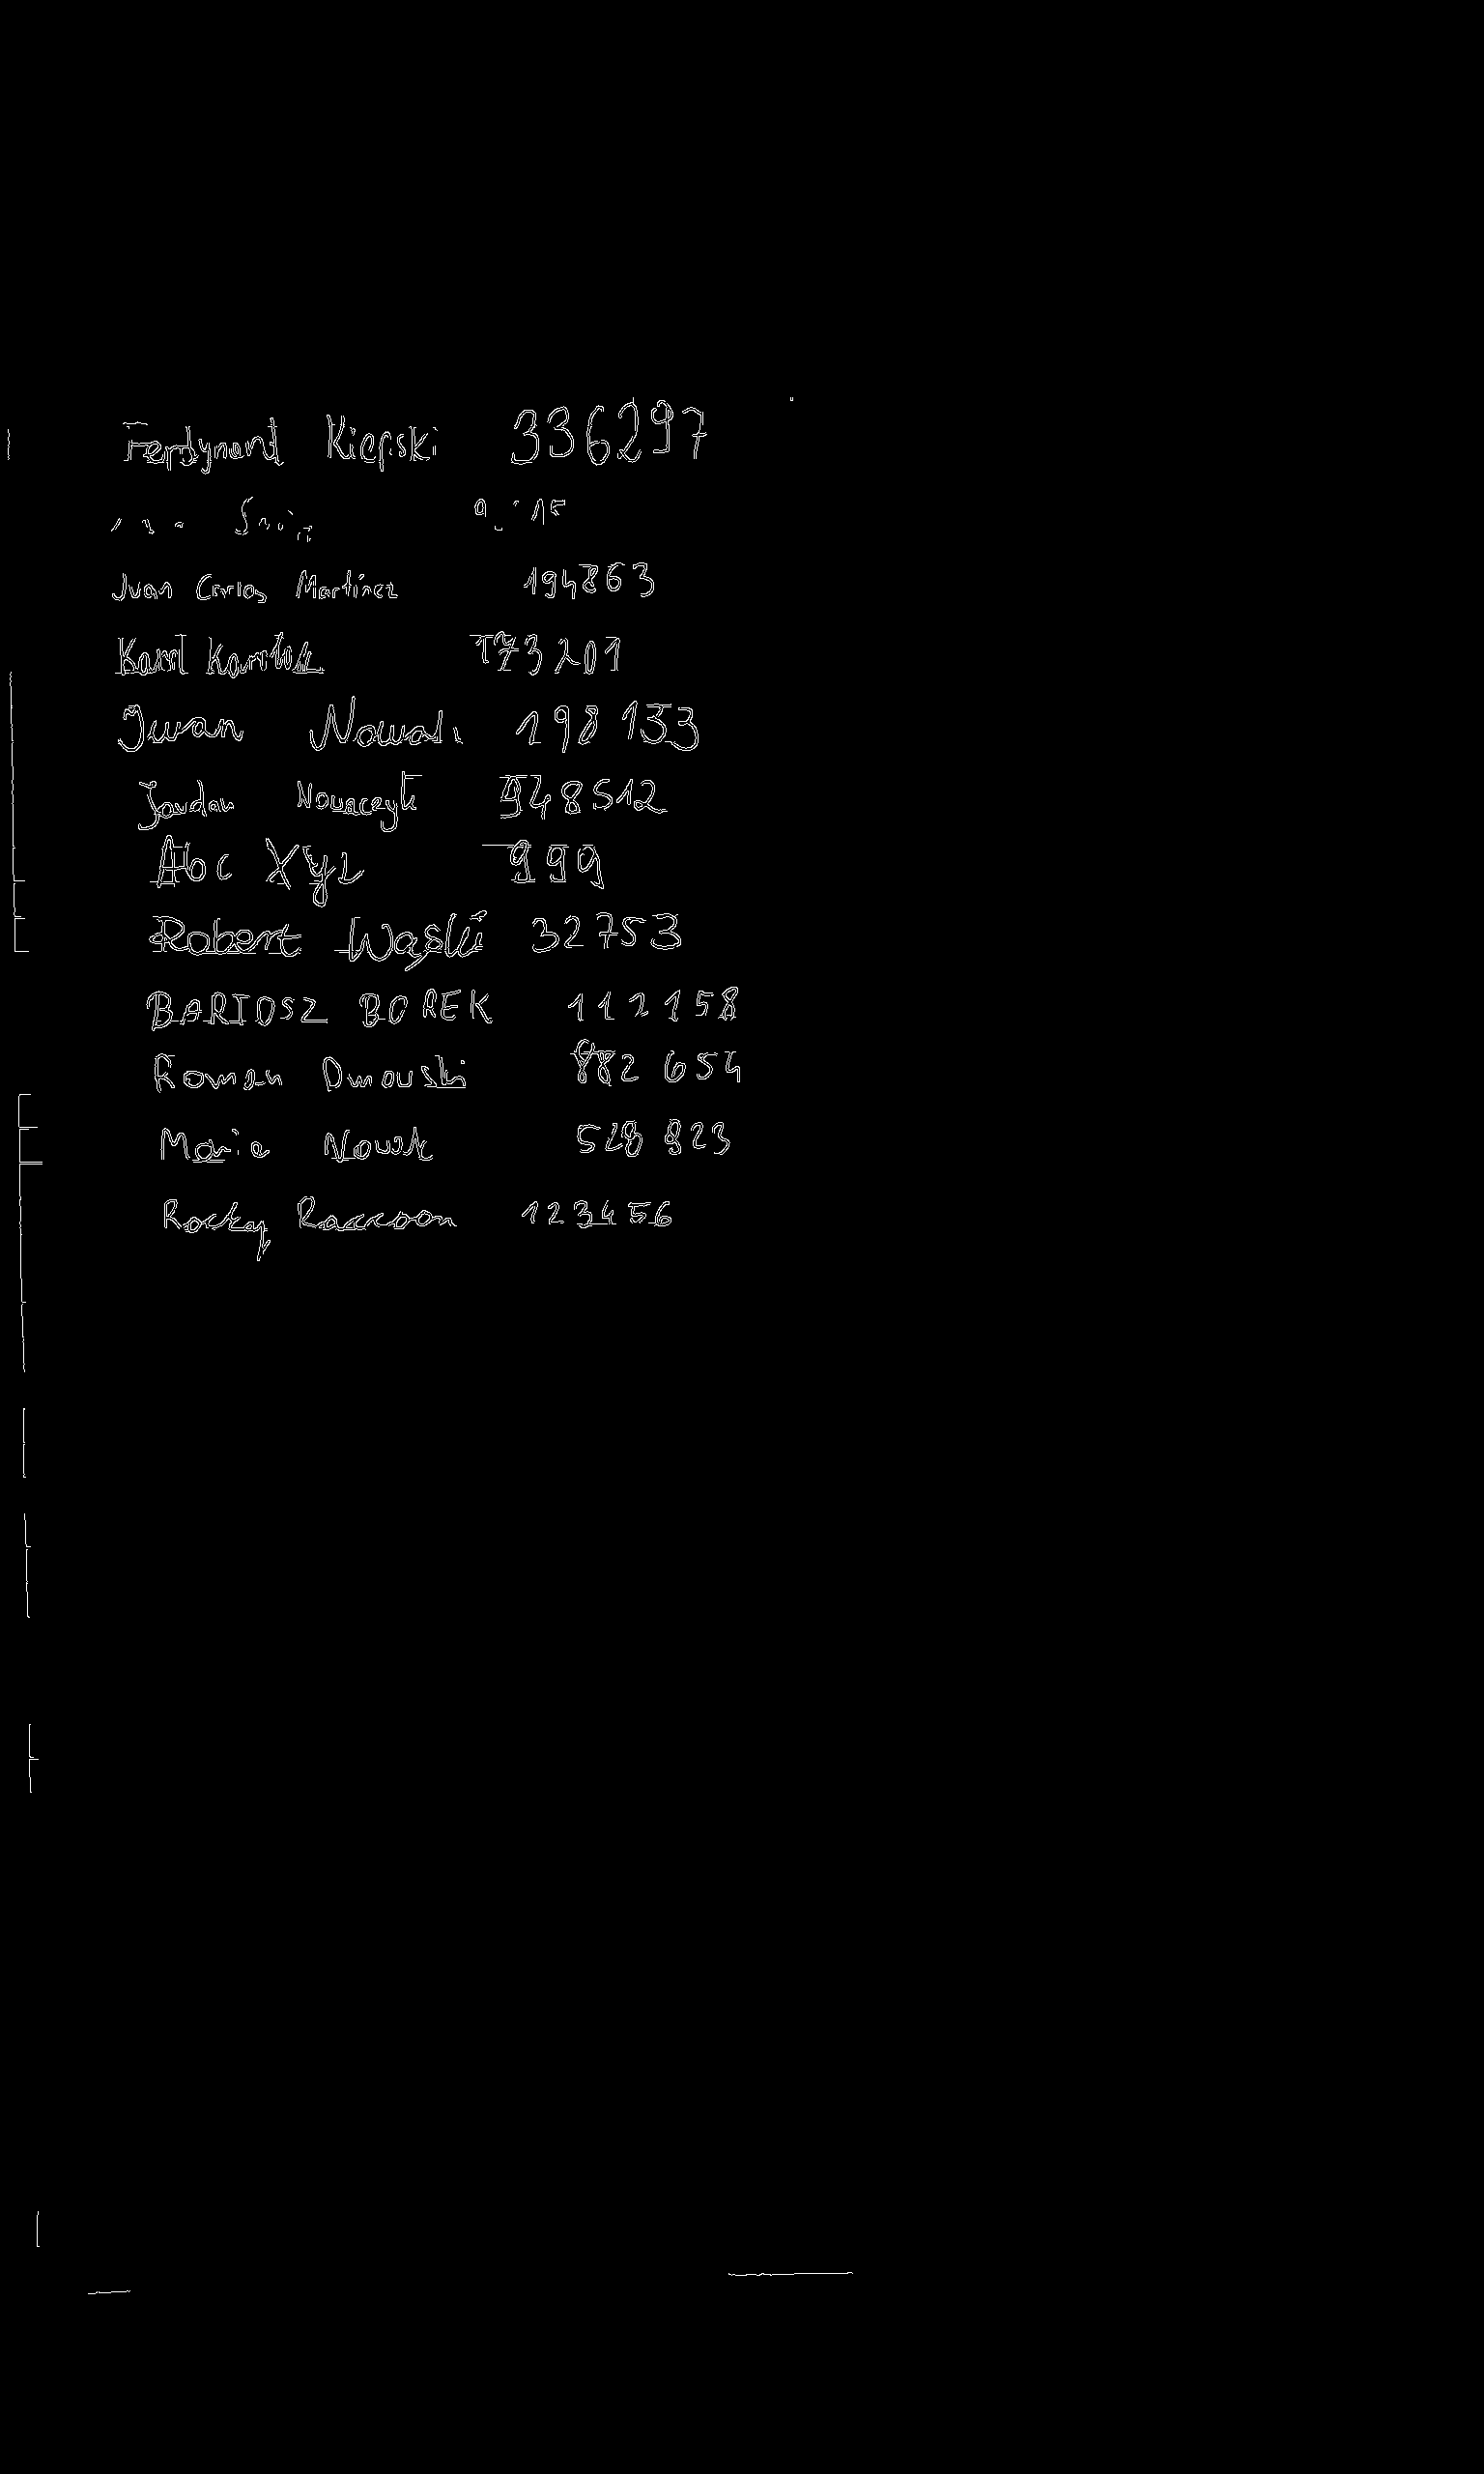 Ferdynand Kiepski 336297
Juan Carlos Martinez 194863
Karol Karolak 173201
Iwan Nowak 198 133
Jordan Nowaczyk 948512
Abc Xyz 999
Robert Wąski 32753
BARTOSZ BOREK 112 158
Roman Dmowski 882 654
Maria Nowak 528 823
Rocky Raccoon 123456